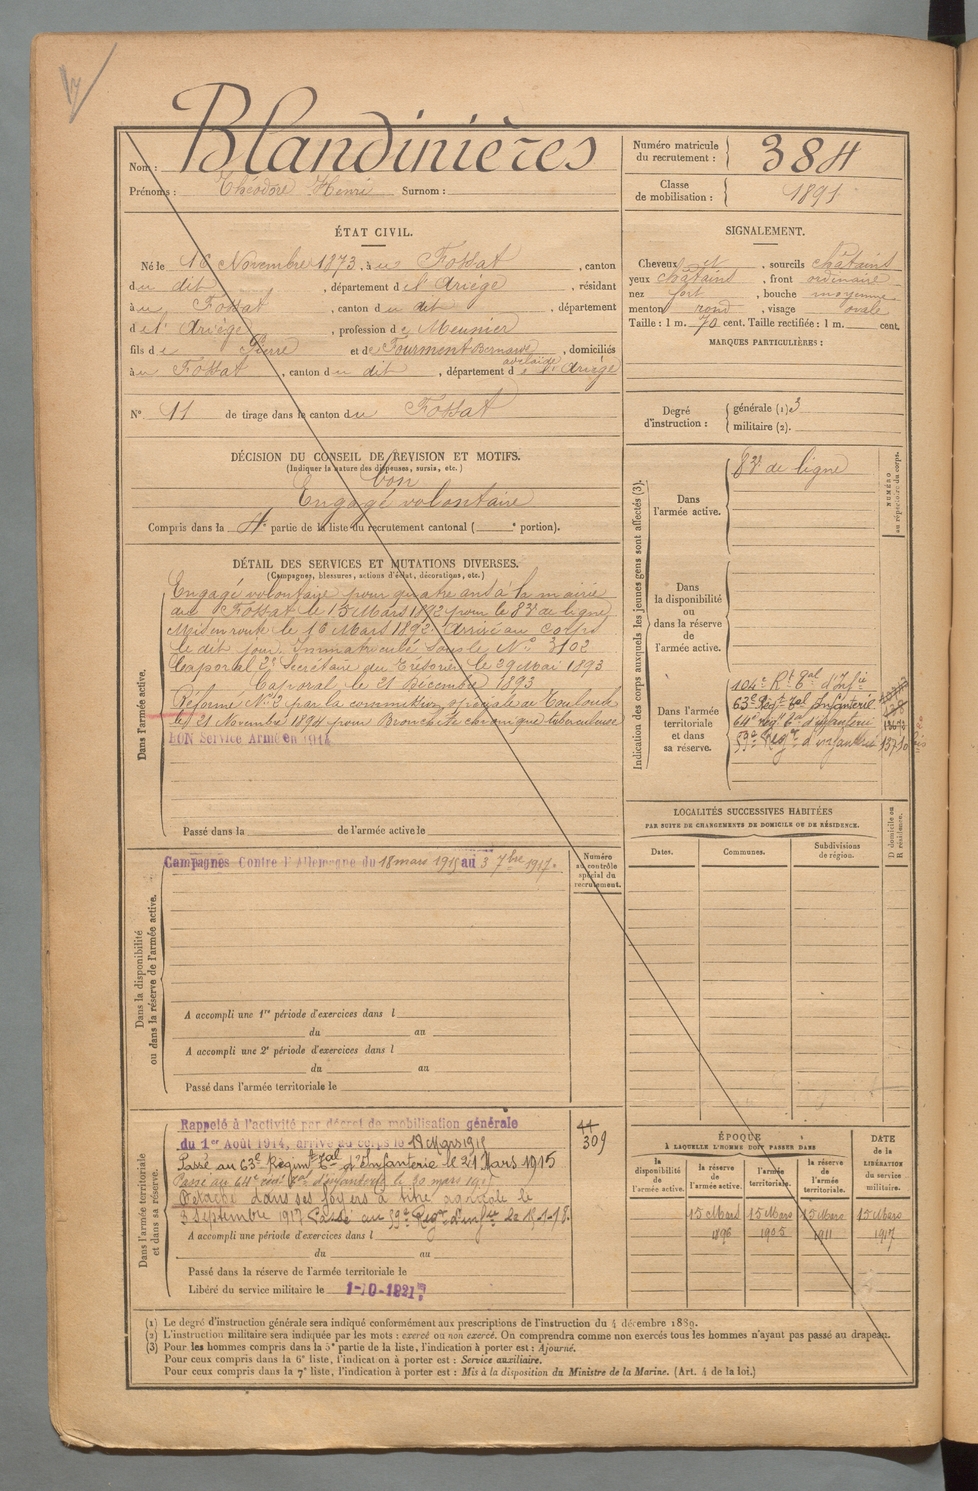 Nom : Blandinières
Prénoms : Théodore Henri Surnom :
Numéro matricule du recrutement : 384
Classe de mobilisation : 1891
ÉTAT CIVIL.
Né le 16 Novembre 1873, à u Fossat, canton
du dit, département de l'Ariège, résidant
à u Fossat, canton du dit, département
d e l'Ariège, profession de Meunier
fils de Pierre et de Fourment Bernarde adelaïde, domiciliés
à u Fossat, canton du dit, département de l'Ariège
N° 11 de tirage dans le canton du Fossat
DÉCISION DU CONSEIL DE REVISION ET MOTIFS.
(Indiquer la nature des dispenses, sursis, etc.)
bon
Engagé volontaire
Compris dans la 4e partie de la liste du recrutement cantonal ( e portion).
DÉTAIL DES SERVICES ET MUTATIONS DIVERSES.
(Campagnes, blessures, actions d'éclat, décorations, etc.)
Dans l'armée active.
Engagé volontaire pour quatre ans à la mairie
du Fossat le 15 Mars 1892 pour le 83e de ligne
Mis en route le 16 Mars 1892. Arrivé au corps
le dit jour. Immatriculé sous le N° 3102
Caporal 2e Secrétaire du Trésorier le 29 Mai 1893
Caporal le 21 Décembre 1893
Réformé N° 2 par la commission spéciale de Toulouse
le 21 Novembre 1894 pour Bronchite chronique tuberculeuse
BON Service Armé en 1914
Passé dans la de l'armée active le
Dans la disponibilité ou dans la réserve de l'armée active.
Campagnes Contre l'Allemagne du 18 mars 1915 au 3 7bre 1917.
Numéro au contrôle spécial du recrutement.
A accompli une 1re période d'exercices dans l
du au
A accompli une 2e période d'exercices dans l
du au
Passé dans l'armée territoriale le
Dans l'armée territoriale et dans sa réserve.
Rappelé à l'activité par décret de mobilisation générale
du 1er Août 1914, arrivé au corps le 18 Mars 1915
Passé au 63e Régiment Tal d'Infanterie le 21 Mars 1915
Passé au 64e Tal d'infanterie le 30 mars 1915
Détaché dans ses foyers à titre agricole le
3 Septembre 1917 Passé au 59e Regt d'infie le 1-1-18.
44
309
A accompli une période d'exercices dans l
du au
Passé dans la réserve de l'armée territoriale le
Libéré du service militaire le 1-10-1921
SIGNALEMENT.
Cheveux et, sourcils châtains
yeux châtains, front ordinaire
nez fort, bouche moyenne
menton rond, visage ovale
Taille : 1 m. 70 cent. Taille rectifiée : 1 m. cent.
MARQUES PARTICULIÈRES :
Degré d'instruction : générale (1) 3
militaire (2).
Indication des corps auxquels les jeunes gens sont affectés (3).
NUMÉRO au répertoire du corps.
Dans l'armée active. 83e de ligne
Dans la disponibilité ou dans la réserve de l'armée active.
Dans l'armée territoriale et dans sa réserve.
104e Rt Tal d'Infie
63e Regt Tal Infanterie
64e Regt Tal d'infanterie
59e Regt d'infanterie 13710
LOCALITÉS SUCCESSIVES HABITÉES
PAR SUITE DE CHANGEMENTS DE DOMICILE OU DE RÉSIDENCE.
D domicile ou R résidence.
Dates. Communes. Subdivisions de région.
ÉPOQUE
À LAQUELLE L'HOMME DOIT PASSER DANS
DATE de la LIBÉRATION du service militaire.
la disponibilité de l'armée active. la réserve de l'armée active. l'armée territoriale. la réserve de l'armée territoriale.
15 Mars 15 Mars 15 Mars 15 Mars
1896 1905 1911 1917
(1) Le degré d'instruction générale sera indiqué conformément aux prescriptions de l'instruction du 4 décembre 1889.
(2) L'instruction militaire sera indiquée par les mots : exercé ou non exercé. On comprendra comme non exercés tous les hommes n'ayant pas passé au drapeau.
(3) Pour les hommes compris dans la 5e partie de la liste, l'indication à porter est : Ajourné.
Pour ceux compris dans la 6e liste, l'indication à porter est : Service auxiliaire.
Pour ceux compris dans la 7e liste, l'indication à porter est : Mis à la disposition du Ministre de la Marine. (Art. 4 de la loi.)